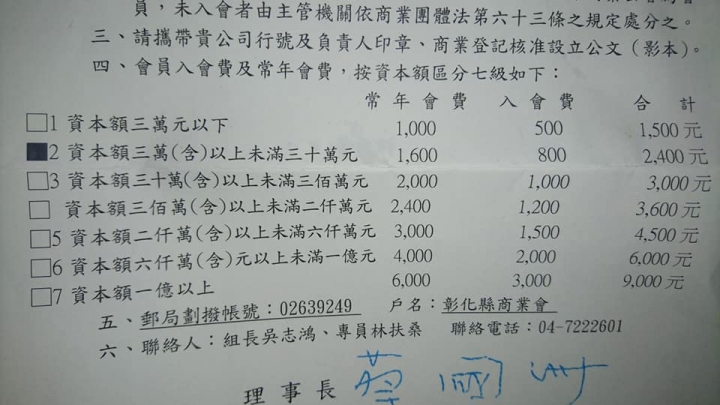 員，未入會者由主管機關依商業團體法第六十三條之規定處分之。
三、請攜帶貴公司行號及負責人印章、商業登記核准設立公文（影本）。
四、會員入會費及常年會費，按資本額區分七級如下：
常年會費 入會費 合計
□1 資本額三萬元以下 1,000 500 1,500元
■2 資本額三萬(含)以上未滿三十萬元 1,600 800 2,400元
□3 資本額三十萬(含)以上未滿三佰萬元 2,000 1,000 3,000元
□ 資本額三佰萬(含)以上未滿二仟萬元 2,400 1,200 3,600元
□5 資本額二仟萬(含)以上未滿六仟萬元 3,000 1,500 4,500元
□6 資本額六仟萬(含)元以上未滿一億元 4,000 2,000 6,000元
□7 資本額一億以上 6,000 3,000 9,000元
五、郵局劃撥帳號：02639249 戶名：彰化縣商業會
六、聯絡人：組長吳志鴻、專員林扶桑 聯絡電話：04-7222601
理事長